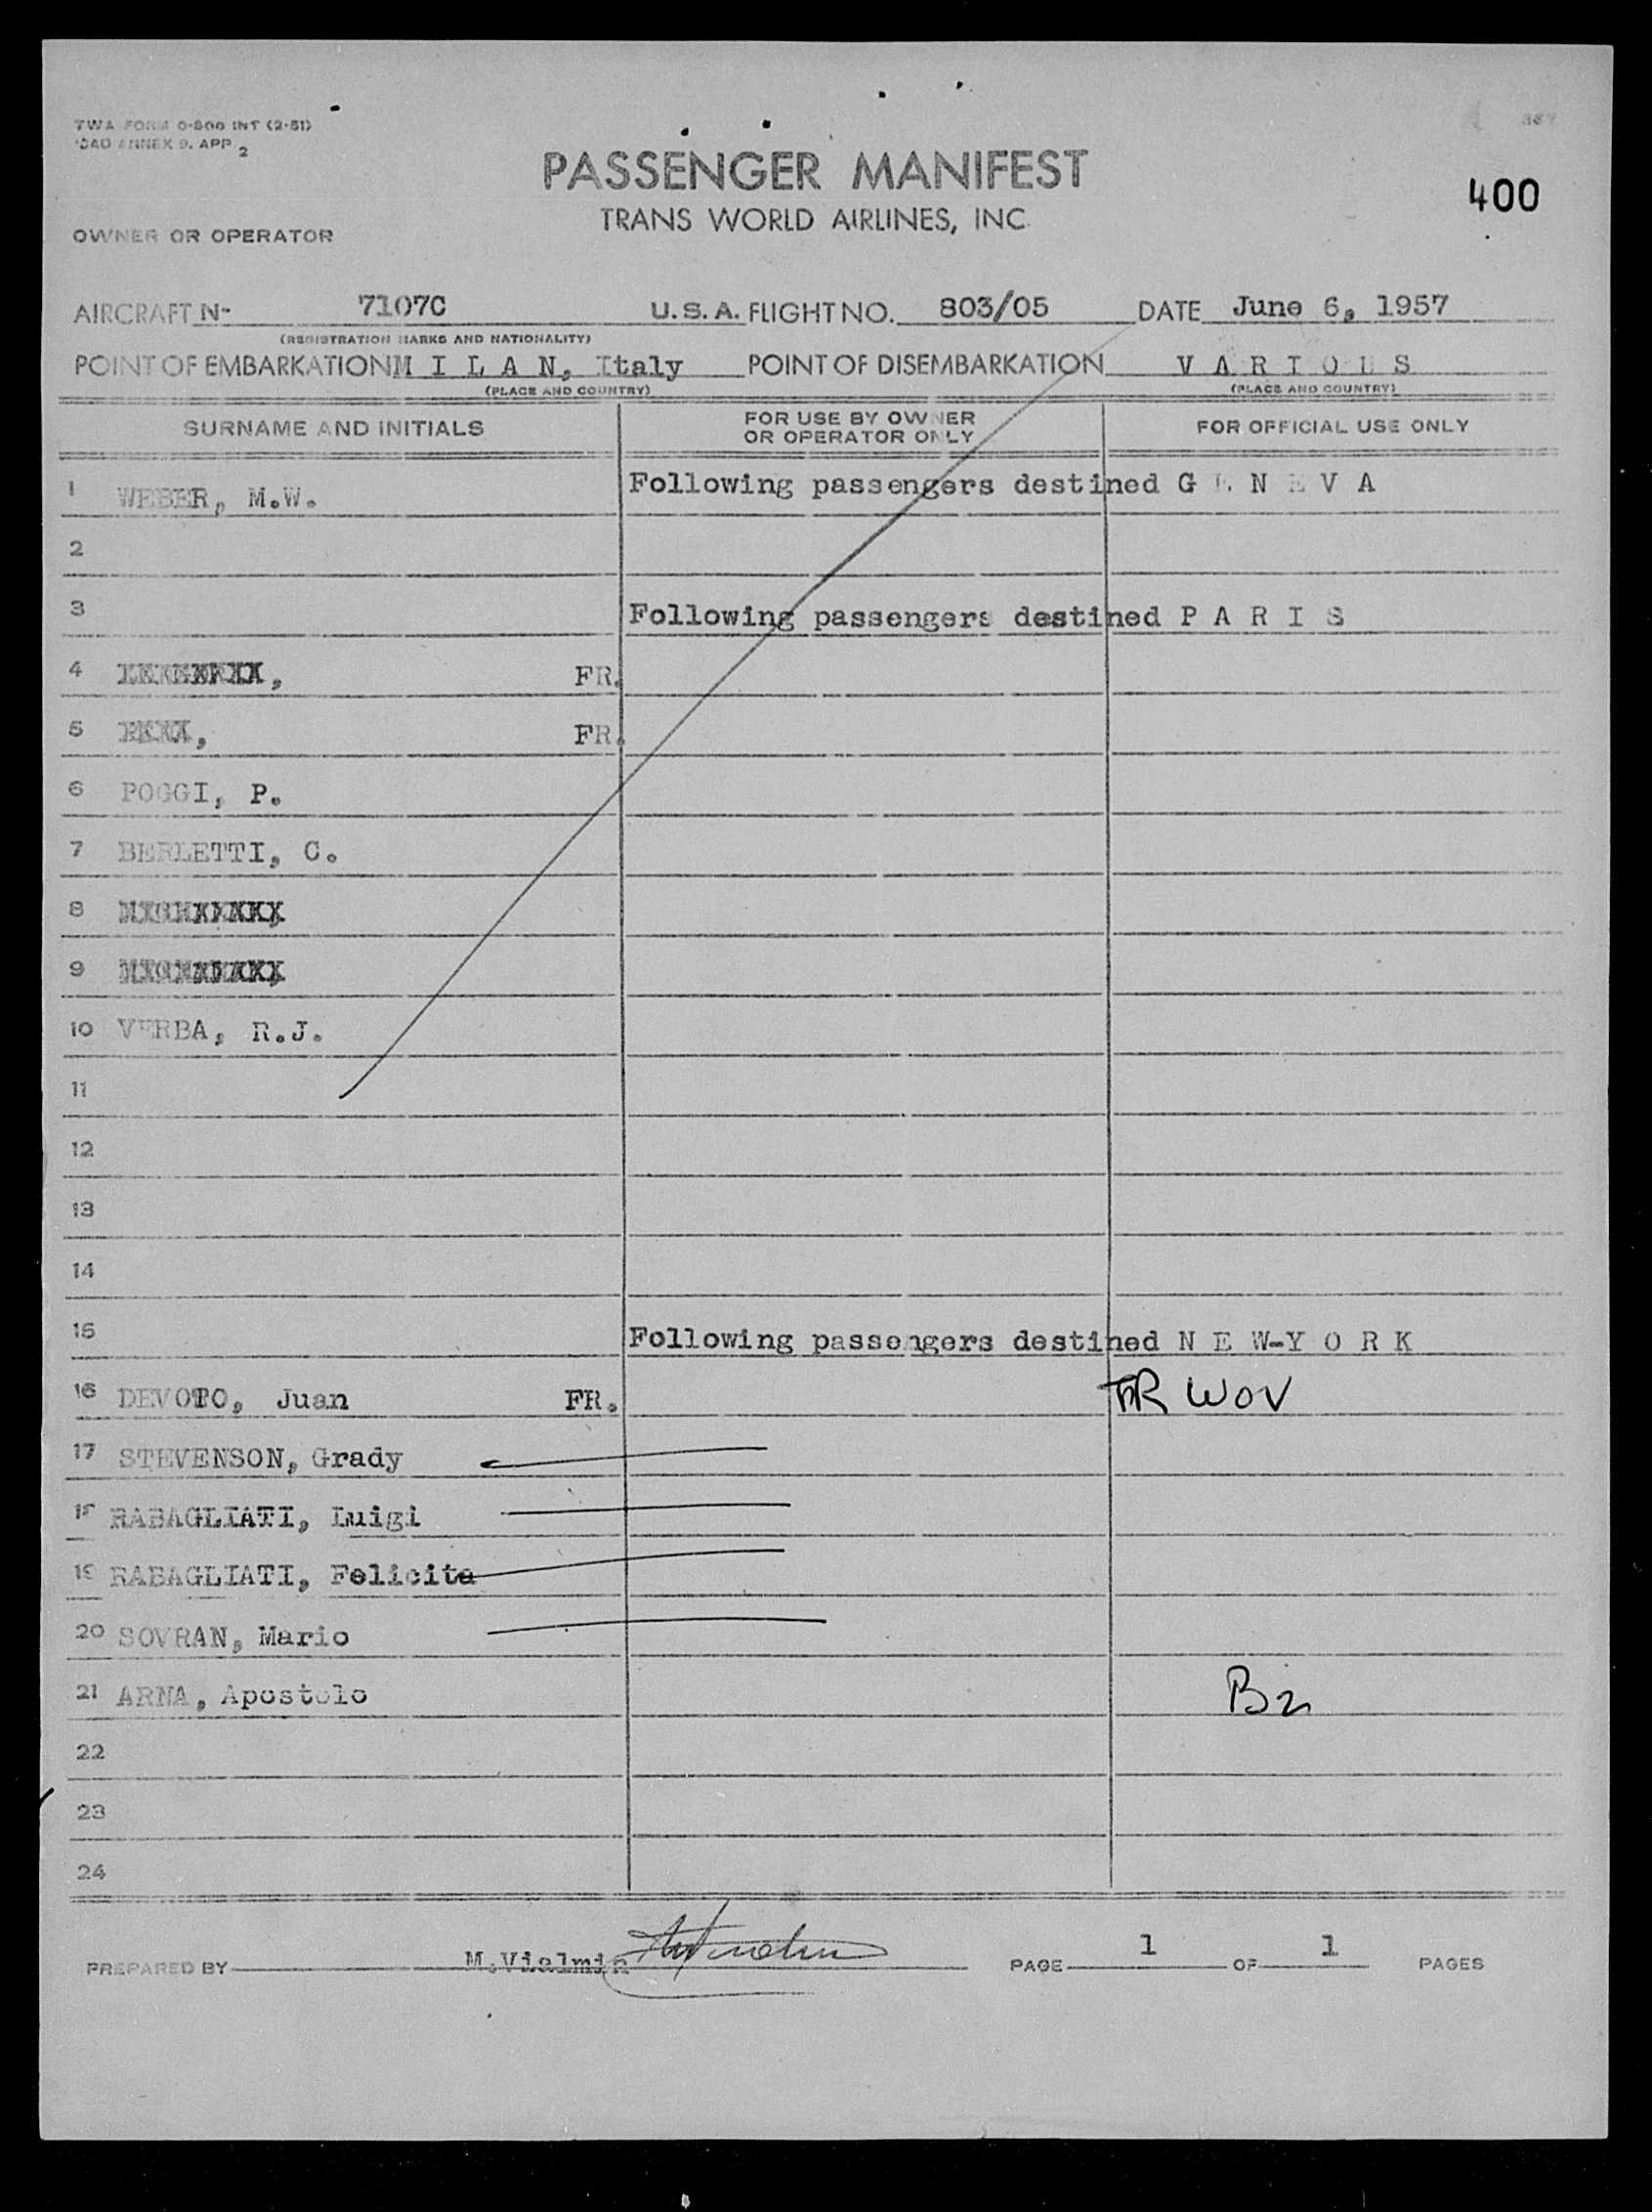 TWA FORM O-800 INT (2-51)
ICAO ANNEX 9. APP 2
367
PASSENGER MANIFEST
400
TRANS WORLD AIRLINES, INC.
OWNER OR OPERATOR
AIRCRAFT N- 7107C U.S.A. FLIGHT NO. 803/05 DATE June 6, 1957
(REGISTRATION MARKS AND NATIONALITY)
POINT OF EMBARKATION M I L A N, Italy POINT OF DISEMBARKATION V A R I O U S
(PLACE AND COUNTRY) (PLACE AND COUNTRY)
SURNAME AND INITIALS FOR USE BY OWNER OR OPERATOR ONLY FOR OFFICIAL USE ONLY
1 WEBER, M.W. Following passengers destined G E N E V A
2
3 Following passengers destined P A R I S
4 FR.
5 FR.
6 POGGI, P.
7 BERLETTI, C.
8
9
10 VERBA, R.J.
11
12
13
14
15 Following passengers destined N E W-Y O R K
16 DEVOTO, Juan FR. TR WOV
17 STEVENSON, Grady
18 RABAGLIATI, Luigi
19 RABAGLIATI, Felicita
20 SOVRAN, Mario
21 ARNA, Apostolo
22
23
24
PREPARED BY M.Vialmin PAGE 1 OF 1 PAGES